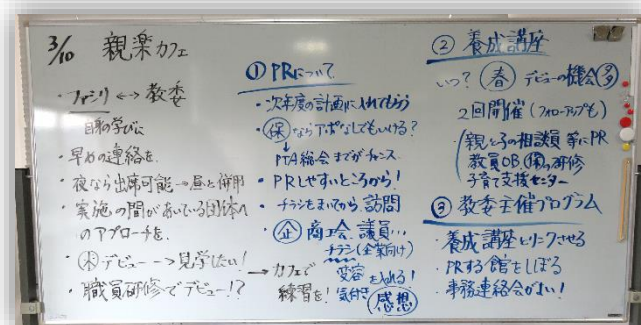 3/10 親楽カフェ
・ファシリ ←→ 教委
自身の学びに
・早めの連絡を.
・夜なら出席可能→昼と併用
・実施の間があいている団体へ
のアプローチを.
・未デビュー --→ 見学したい!
・職員研修でデビュー!?
→カフェで
練習を!
① PRについて
・次年度の計画に入れてもらう
・保ならアポなしでもいける?
↓
PTA総会までがチャンス
・PRしやすいところから!
・チラシをまいてから訪問
・企 商工会、議員…
チラシ(企業向け)
受容
気付き
を入れる!
感想
② 養成講座
いつ? 春 デビューの機会多
2回開催(フォローアップも)
親と子の相談員 等にPR
教員OB 研修
子育て支援センター
③ 教委主催プログラム
・養成講座とリンクさせる
・PRする館をしぼる
・事務連絡会がよい!